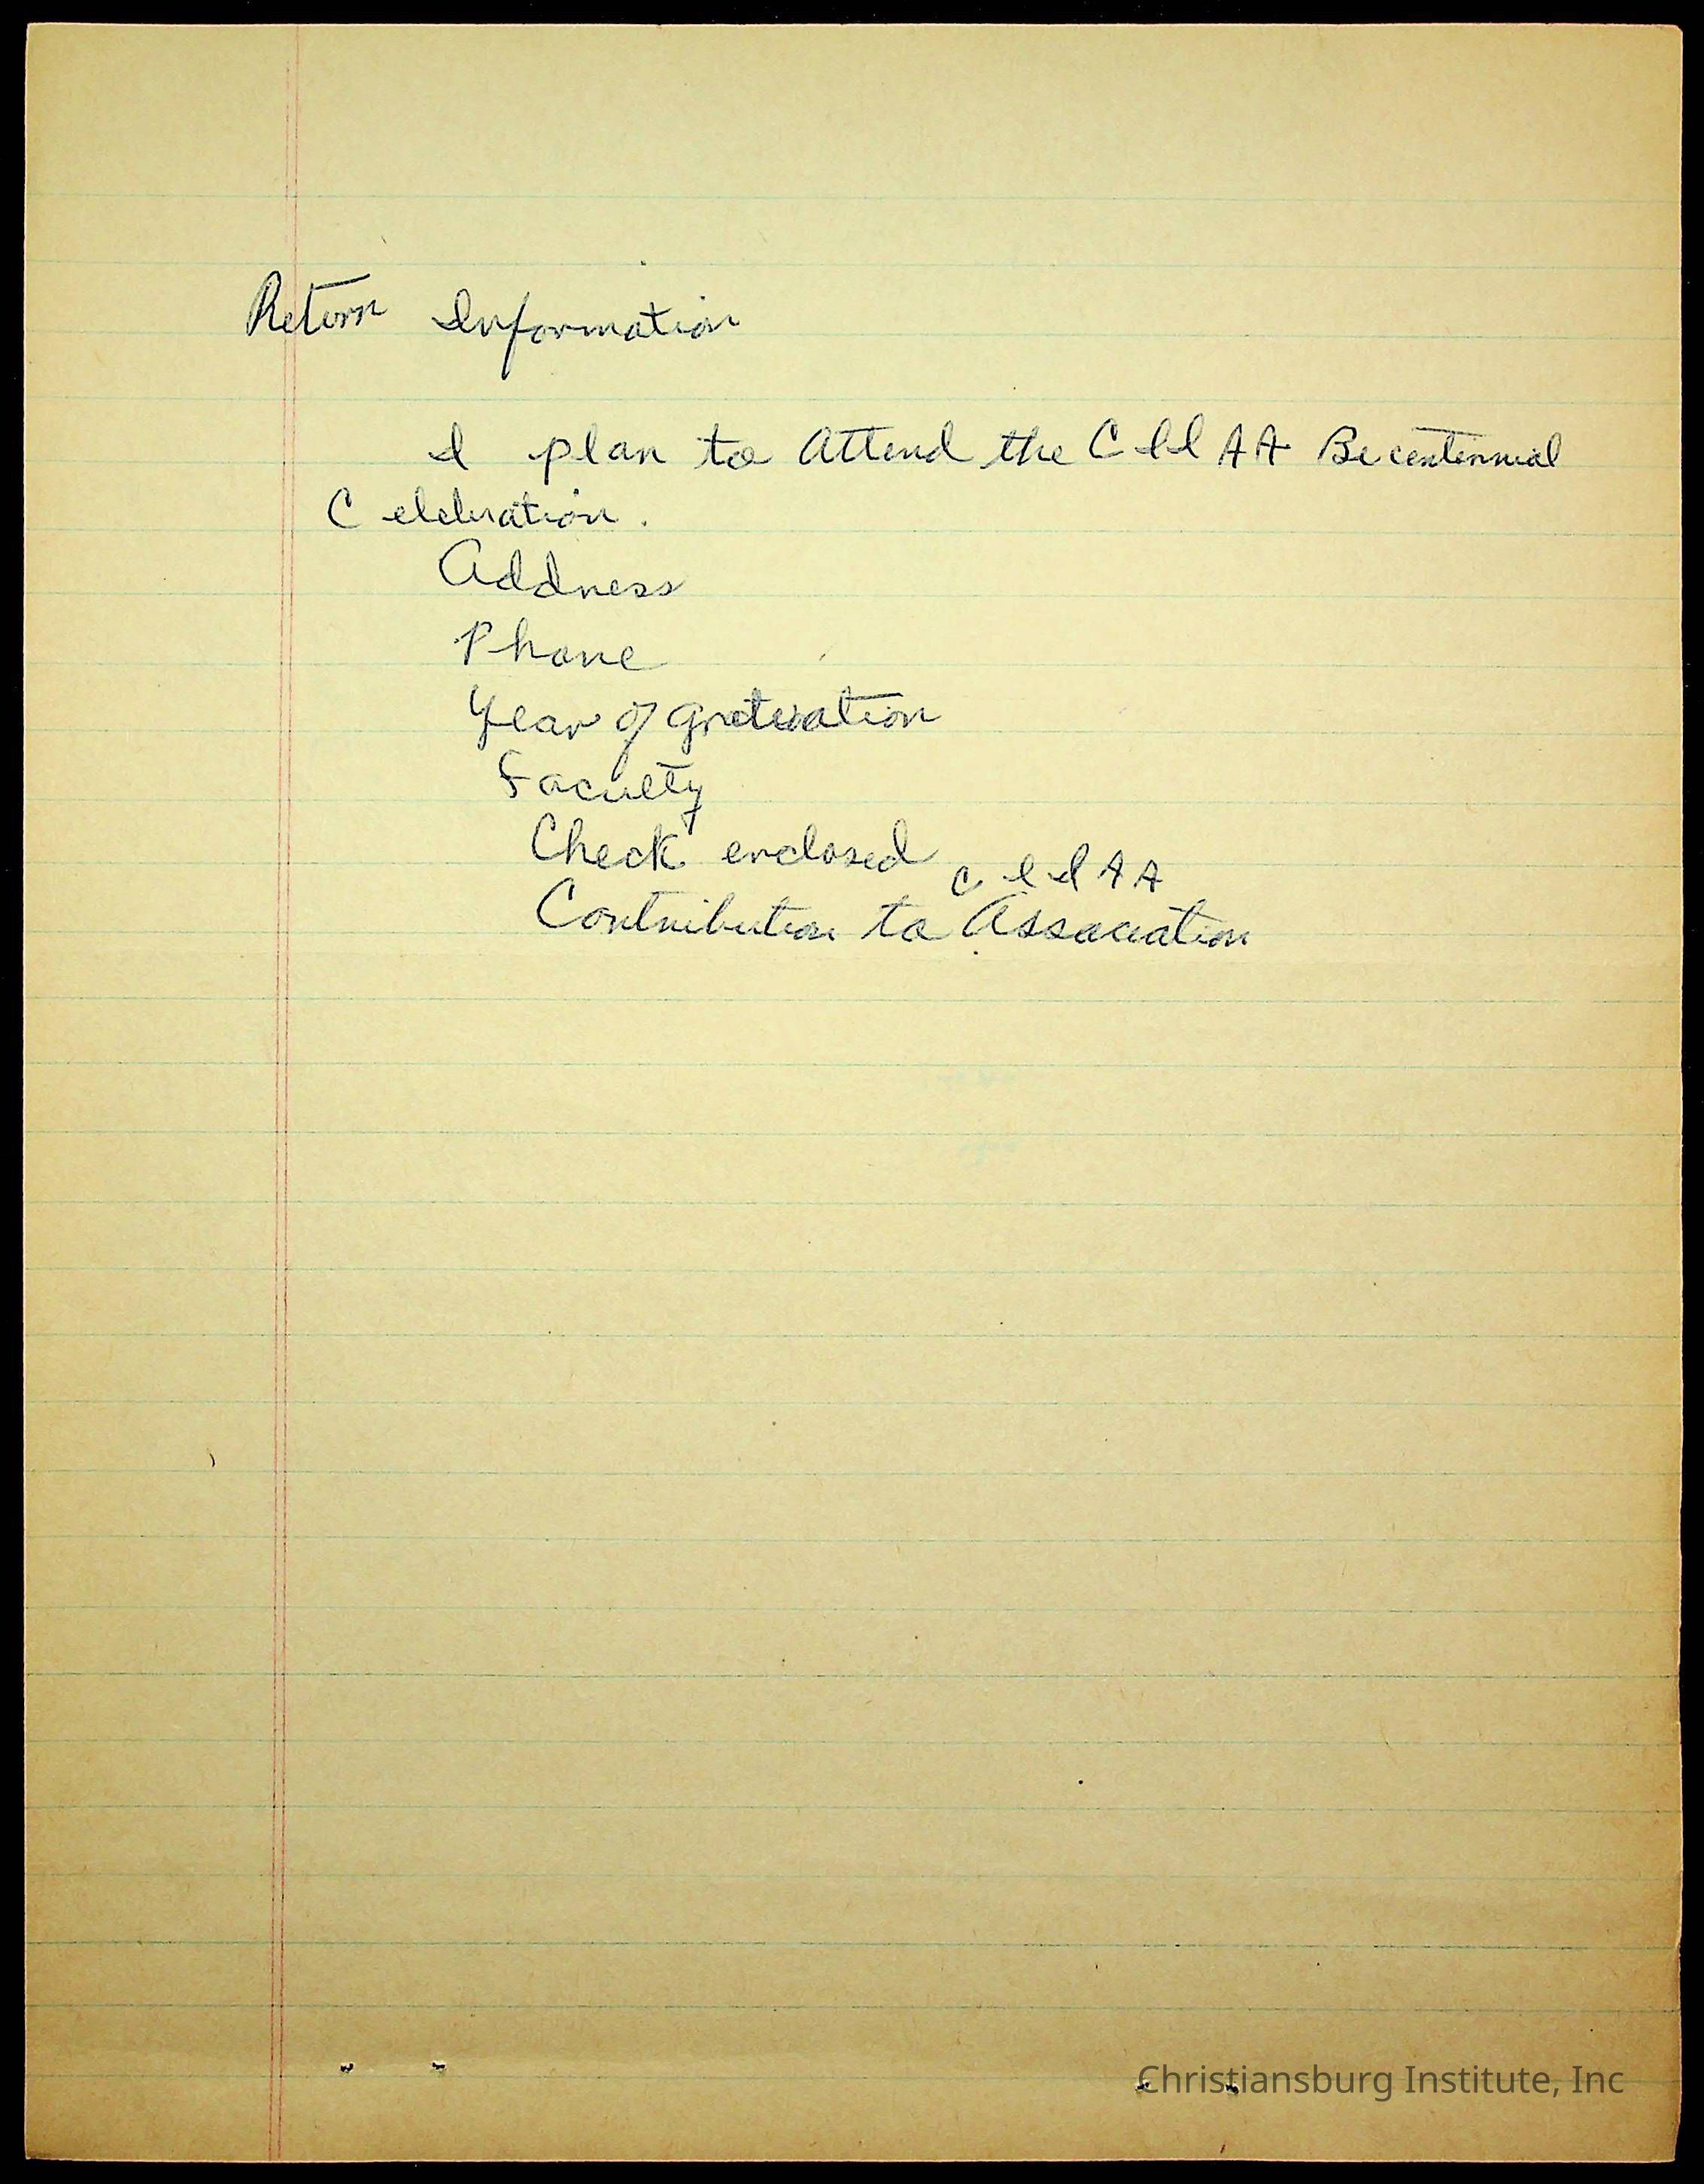 Return Information
I plan to Attend the C I I A A Bicentennial
Celebration.
Address
Phone
Year of gratuation
Faculty
Check enclosed
C I I A A
Contribution to Association
Christiansburg Institute, Inc